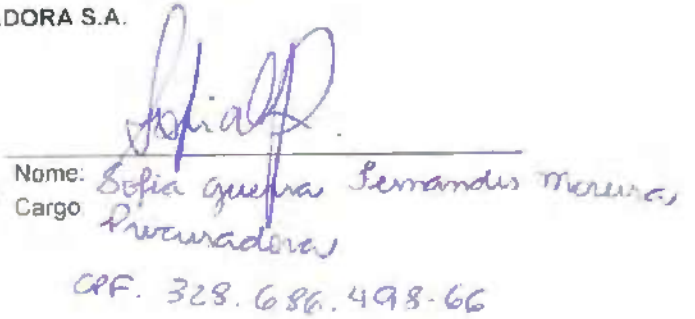 ADORA S.A.
Nome: Sofia Guerra Fernandes Moreira
Cargo Procuradora
CPF. 328.686.498-66